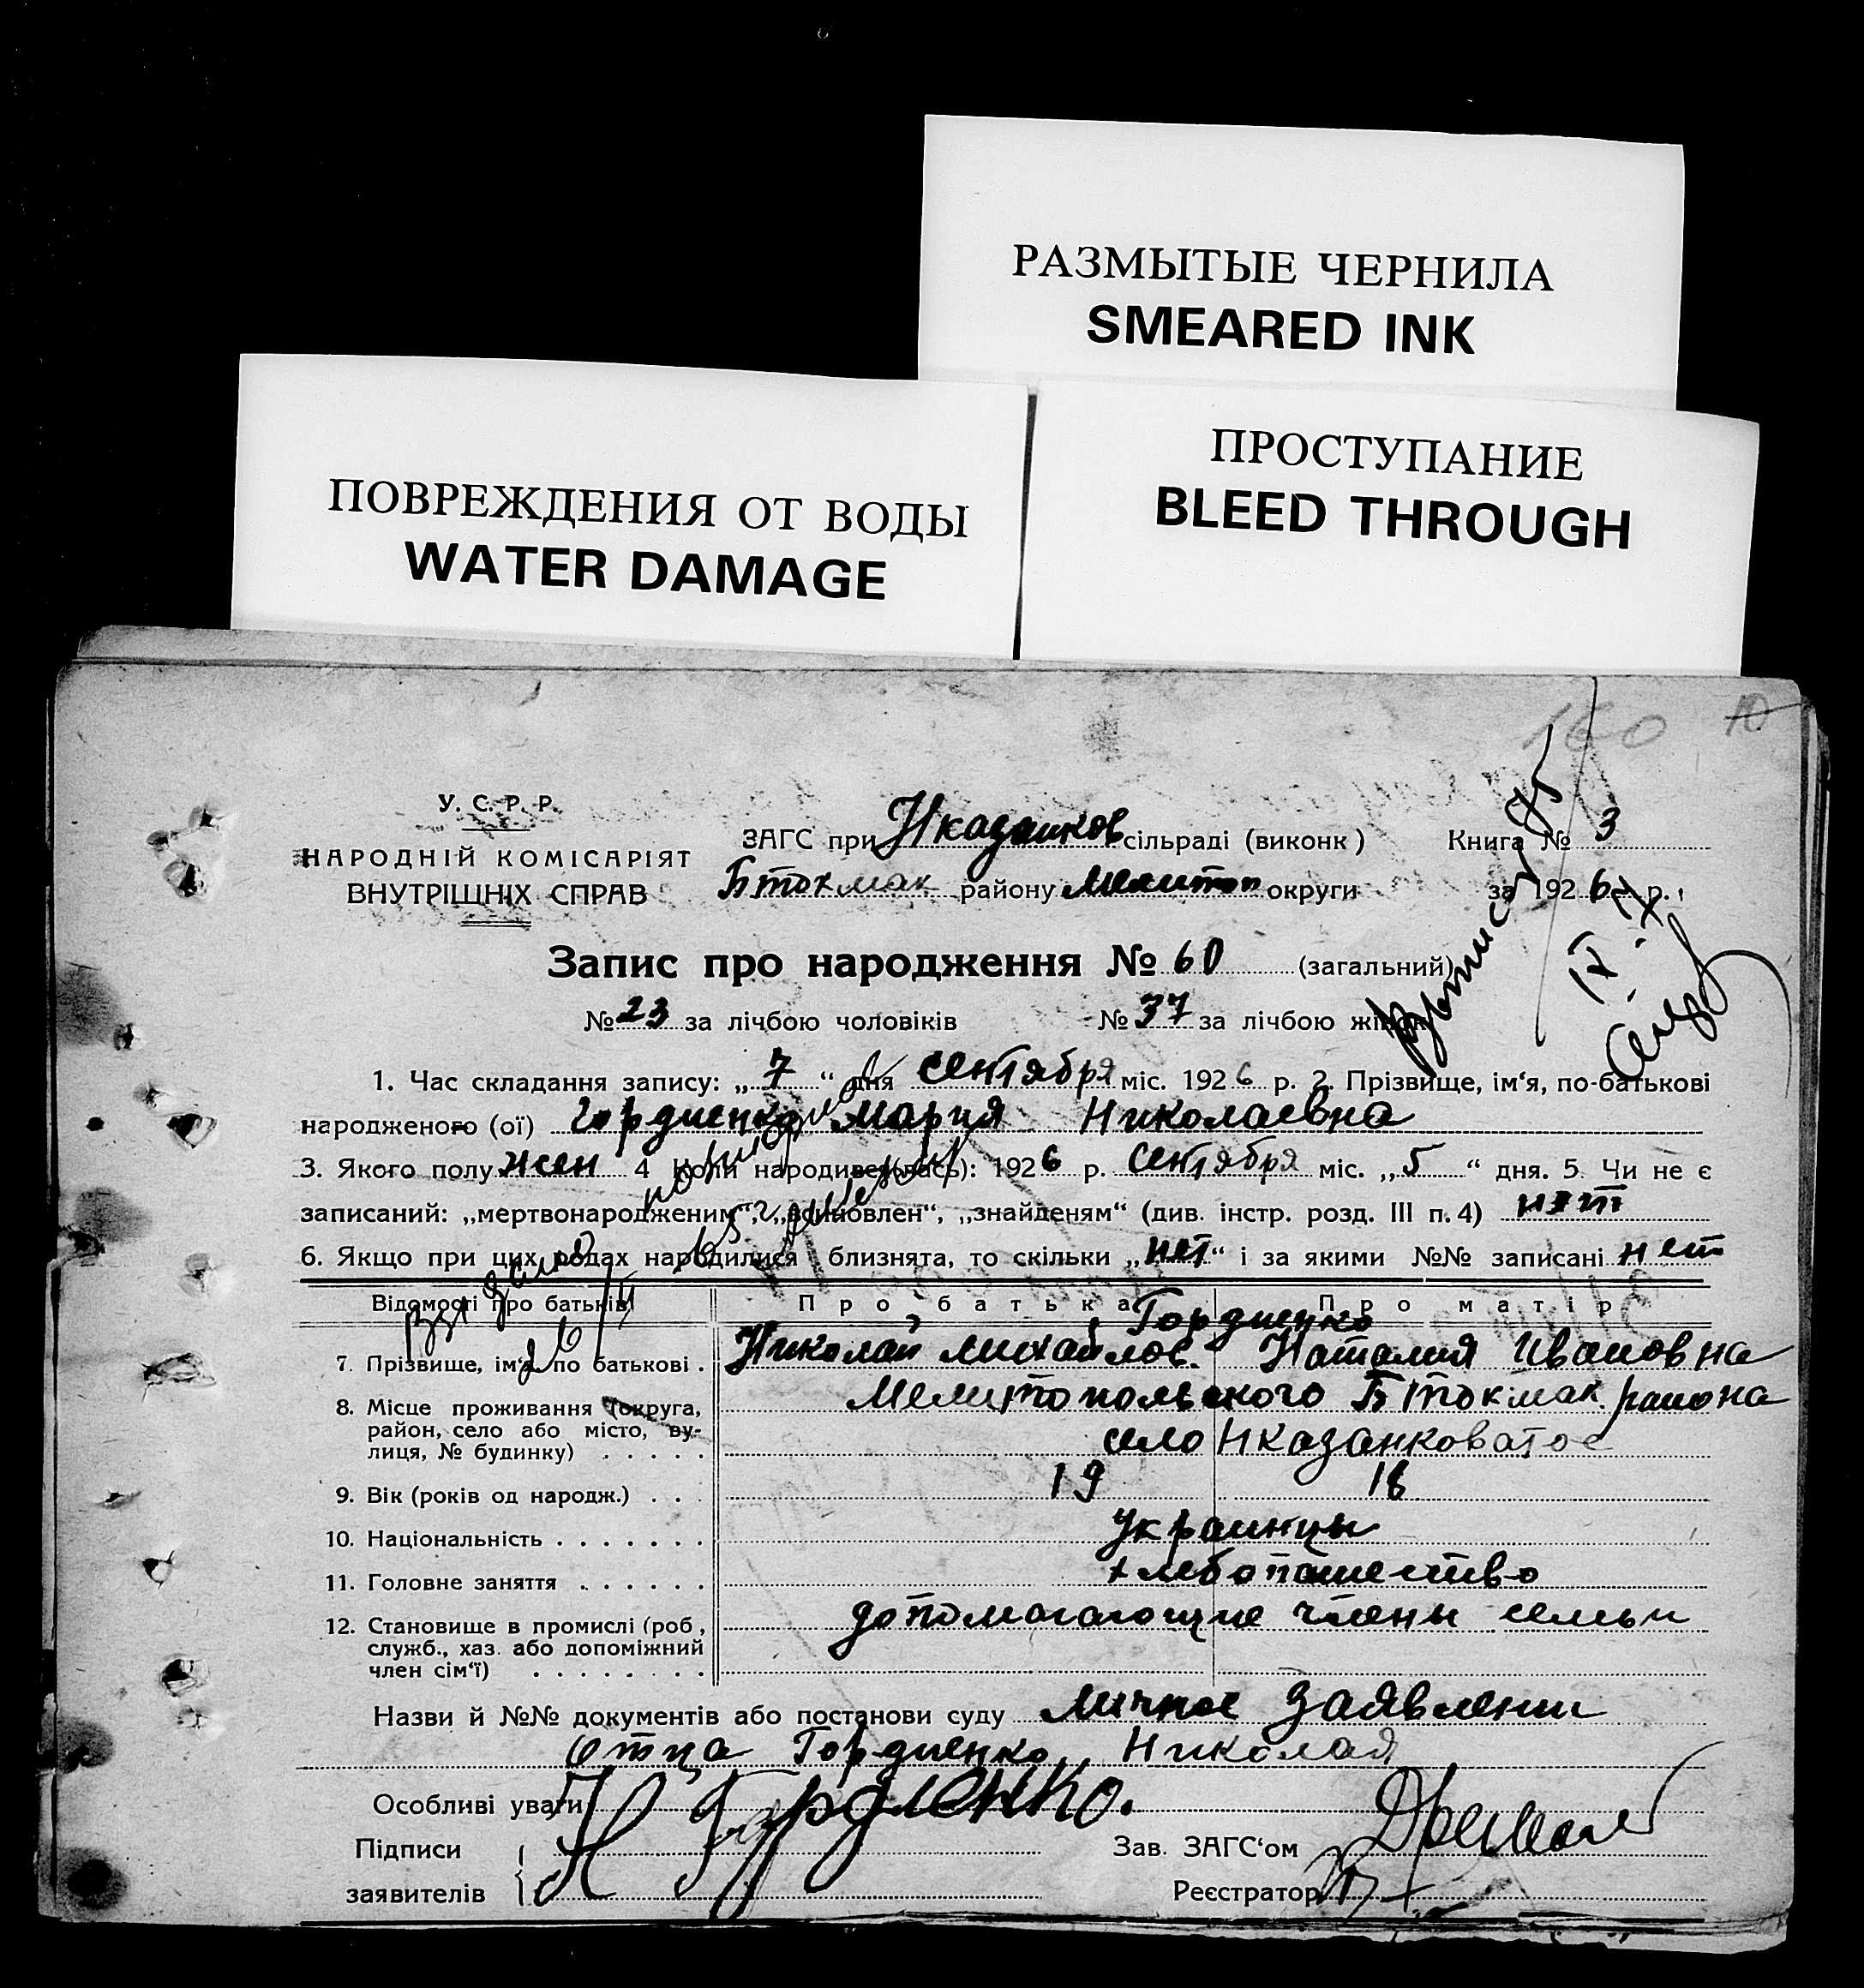 РАЗМЫТЫЕ ЧЕРНИЛА
SMEARED INK
ПРОСТУПАНИЕ
BLEED THROUGH
ПОВРЕЖДЕНИЯ ОТ ВОДЫ
WATER DAMAGE
160
У. С. Р. Р.
НАРОДНІЙ КОМІСАРІЯТ
ВНУТРІШНІХ СПРАВ
ЗАГС при Нказанков сільраді (виконк) Книга № 3
Бтокмак району Мелитоп округи за 1926 р.
Запис про народження № 60 (загальний)
№ 23 за лічбою чоловіків № 37 за лічбою жінок
1. Час складання запису: „7“ дня сентября міс. 1926 р. 2. Прізвище, ім‘я, по-батькові
народженого (ої) Гордиенко Мария Николаевна
3. Якого полу жен 4 Коли народився(лась): 1926 р. Сентября міс. „5“ дня. 5. Чи не є
записаний: „мертвонародженим“, „всиновлен“, „знайденям“ (див. інстр. розд. III п. 4) нет
6. Якщо при цих родах народилися близнята, то скільки „нет“ і за якими №№ записані нет
Відомості про батьків Про батька Про матір
Гордиенко
7. Прізвище, ім‘я, по батькові . Николай Михайлов. Наталия Ивановна
8. Місце проживання (округа, Мелитопольского Бтокмак. района
район, село або місто, ву- село Нказанковатое
лиця, № будинку) . . . . .
9. Вік (років од народж.) . . . 19 18
10. Національність . . . . . . . Украинцы
11. Головне заняття . . . . . . хлебопашество
12. Становище в промислі (роб., допомагающие члены семьи
служб., хаз. або допоміжний
член сім‘ї) . . . . . . . .
Назви й №№ документів або постанови суду личное Заявлении
Отца Гордиенко Николая
Особливі уваги
Підписи Н Гордиенко. Зав. ЗАГС‘ом
заявителів Реєстратор